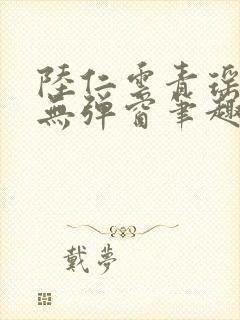 陸仁雲青瑤
無彈窗筆趣
戴夢